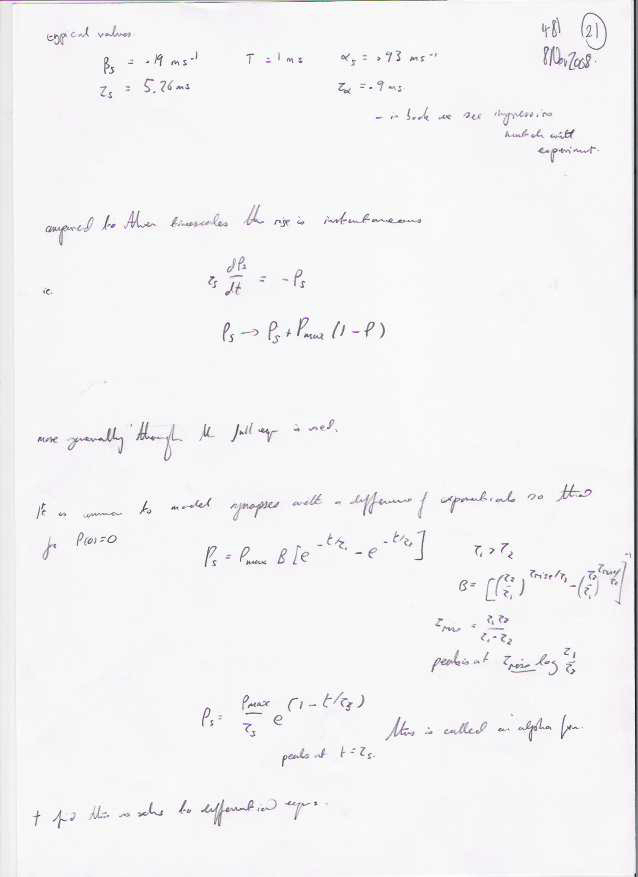 typical values
481 (21)
8 Nov 2008.
βs = .19 ms⁻¹ T = 1 ms αs = .93 ms⁻¹
τs = 5.26 ms τα = .9 ms
- in book we see impressive
match with
experiment.
compared to other timescales the rise is instantaneous
ie. τs dPs/dt = -Ps
Ps → Ps + Pmax (1 - P)
more generally though the full eqn is used.
It is common to model synapses with a difference of exponentials so that
for P(0)=0
Ps = Pmax B [e^(-t/τ1) - e^(-t/τ2)] τ1 > τ2
B = [(τ2/τ1)^(τrise/τ1) - (τ2/τ1)^(τrise/τ2)]⁻¹
τrise = τ1τ2/(τ1-τ2)
peaks at τrise log τ1/τ2
Ps = Pmax/τs e^(1 - t/τs) this is called an alpha fn.
peaks at t = τs.
† find this as soln to differential eqns.